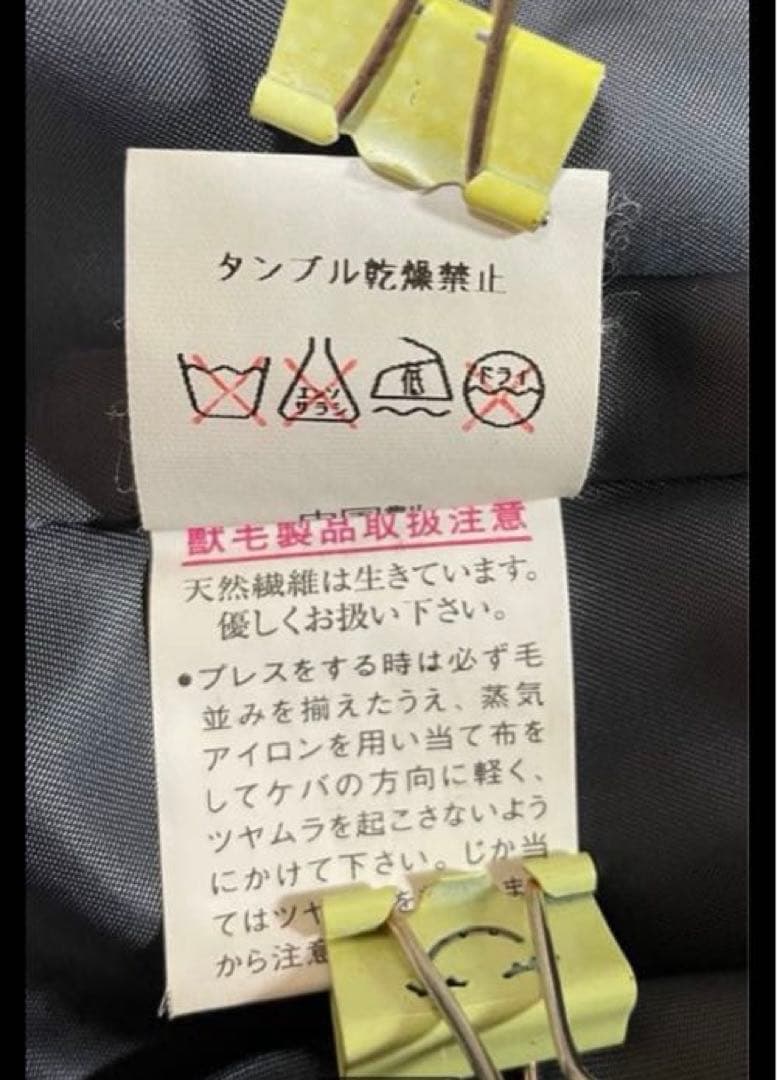 タンブル乾燥禁止
エンソ
サラシ
低
ドライ
獣毛製品取扱注意
天然繊維は生きています。
優しくお扱い下さい。
●プレスをする時は必ず毛
並みを揃えたうえ、蒸気
アイロンを用い当て布を
してケバの方向に軽く、
ツヤムラを起こさないよう
にかけて下さい。じか当
てはツヤ を
から注意